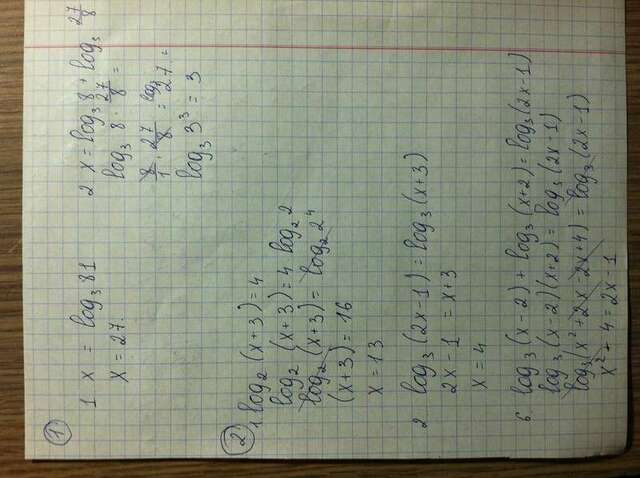 1.
1 x = log₃ 81
x = 27.
2 x = log₃ 8 + log₃ 27/8
log₃ 8 · 27/8 =
8/1 · 27/8 = log₃ 27 =
log₃ 3³ = 3
2.
1. log₂ (x+3) = 4
log₂ (x+3) = 4 log₂ 2
log₂ (x+3) = log₂ 2⁴
(x+3) = 16
x = 13
2 log₃ (2x-1) = log₃ (x+3)
2x - 1 = x+3
x = 4
6. log₃ (x-2) + log₃ (x+2) = log₃ (2x-1)
log₃ (x-2)(x+2) = log₃ (2x-1)
log₃ (x² + 2x - 2x + 4) = log₃ (2x-1)
x² + 4 = 2x - 1